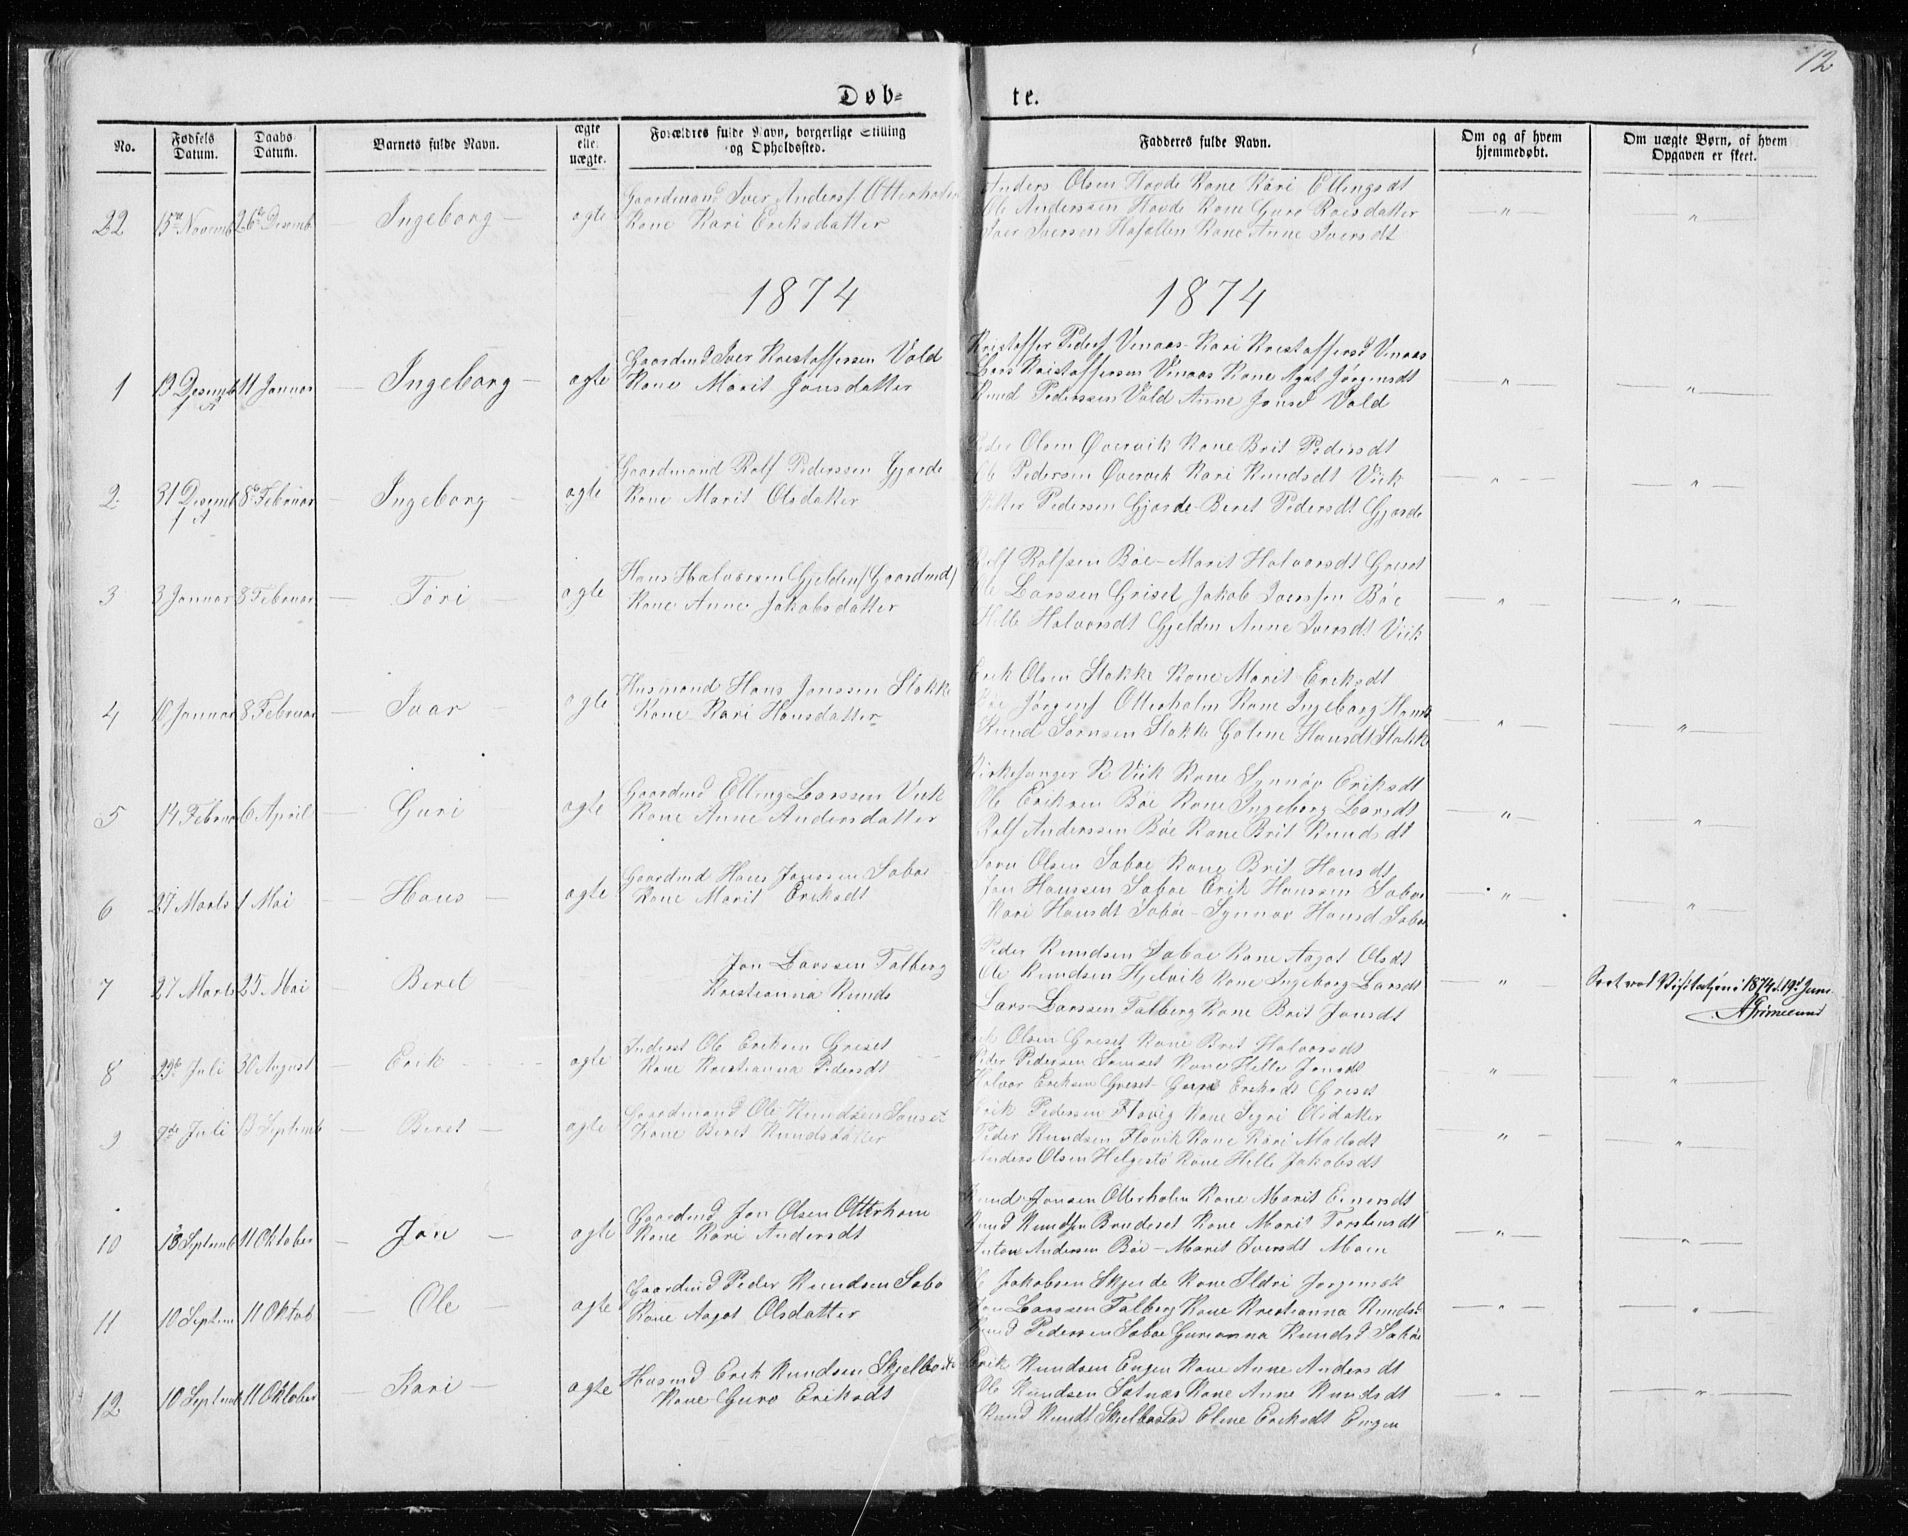 12
Døb= te.
No.
Fødsels Datum.
Daabs Datum.
Barnets fulde Navn.
ægte elle uægte.
Forældres fulde Navn, borgerlige Stilling og Opholdssted.
Fadderes fulde Navn.
Om og af hvem hjemmedøbt.
Om uægte Børn, af hvem Opgaven er skeet.
22 15de Novemb 26de Desemb Ingeborg — ægte
Gaardmand Iver Anders Otterholm
Kone Kari Eriksdatter
Anders Olsen Hovde Kone Kari Ellingsdt
Ole Anderssen Hovde Kone Guro Roesdatter
Iver Iversen Kone Anne Iversdt
— " — — " —
1874 1874
1 13 Desemb 11 Januar — Ingeborg — ægte
Gaardmd Iver Kristoffersen Vold
Kone Marit Jonsdatter
Kristoffer Peders Venaas - Kari Kristoffersd Venaas
Lars Kristoffersen Venaas Kone Agat Jørgensdt
Knud Pederssen Vold Anne Jonsd Vold
— " — — " —
2 31 Desemb 8de Februar — Ingeborg — ægte
Gaardmand Rolf Pederssen Gjerde
Kone Marit Olsdatter
Peder Olsen Øvervik Kone Brit Pedersdt
Ole Pedersen Øvervik Kari Knudsdt Viik
Petter Pedersen Gjerde - Beret Pedersdt Gjerde
— " — — " —
3 3 Januar 8 Februar — Tori — ægte
Hans Halvorsen Gjelden /Gaardmd/
Kone Anne Jakobsdatter
Rolf Rolfsen Bøe - Marit Halvorsdt Griset
Ole Larssen Griset Jakob Iverssen Bøe
Helle Halvorsdt Gjelden Anne Iversdt Viik
— " — — " —
4 10 Januar 8 Februar — Ivar — ægte
Husmand Hans Jonssen Stokke
Kone Kari Hansdatter
Erik Olsen Stokke Kone Marit Eriksdt
Jørgens Otterholm Kone Ingeborg Hansdt
Knud Sørnsen Stokke Goline Hansdt Stokke
— " — — " —
5 14 Februar 6 April — Guri — ægte
Gaardmd Elling Larssen Viik
Kone Anne Andersdatter
Kirkesanger K Viik Kone Synnøv Eriksdt
Ole Eriksen Bøe Kone Ingeborg Larsdt
Rolf Anderssen Bøe Kone Brit Knudsdt
— " — — " —
6 27 Marts 1 Mai — Hans — ægte
Gaardmd Hans Jonssen Sæbøe
Kone Marit Eriksdt
Sørn Olsen Sæbøe Kone Brit Hansdt
Jon Hanssen Sæbøe Erik Hanssen Sæbøe
Kari Hansdt Sæbøe - Synnøv Hansd Sæbøe
— " — — " —
7 27 Marts 25 Mai — Beret —
Jon Larssen Talberg
Kristianna Knuds
Peder Knudsen Sæbøe Kone Aagot Olsdt
Ole Knudsen Hjelvik Kone Ingeborg Larsdt
Lars Larssen Talberg Kone Brit Jonsdt
— " —
Seet ved Visitatzen i 1874 d. 19d Juni.
AGrimelund
8 29de Juli 30 August — Erik — ægte
Inderst Ole Eriksen Griset
Kone Kristianna Pedersdt
Erik Olsen Griset Kone Brit Halvorsdt
Peder Pedersen Kone Helle Jonsdt
Halvor Eriksen Griset - Eriksdt Griset
" "
9 9de Juli 13 Septemb — Beret — ægte
Gaardmand Ole Knudsen
Kone Beret Knudsdatter
Erik Pedersen Flovig Kone Sigri Olsdatter
Peder Knudsen Flovik Kone Kari Madsdt
Anders Olsen Helgestø Kone Helle Jakobsdt
— " — "
10 13 Septemb 11 Oktober — Jon — ægte
Gaardmd Jon Olsen Otterhom
Kone Kari Andersdt
Knud Jonsen Otterholm Kone Marit Einersdt
Knud Knudsen Brudeset Kone Marit Torstensdt
Anton Andersen Bøe - Marit Iversdt Moen
— " — — " —
11 10 Septem 11 Oktob — Ole — ægte
Gaardmd Peder Knudsen Sæbø
Kone Aagot Olsdatter
Ole Jakobsen Skjerde Kone Ildri Jørgensdt
Jon Larssen Talberg Kone Kristianna Knudsd
Knud Pederssen Sæbøe Gurianna Knudsd Sæbøe
" — " —
12 10 Septemb 11 Oktober — Kari — ægte
Husmd Erik Knudsen Skjelbostad
Kone Guro Eriksdt
Erik Knudsen Engen Kone Anne Andersdt
Ole Knudsen Sætnes Kone Anne Knudsdt
Knud Knudt Skjelbostad Eline Eriksdt Engen
— " — — " —